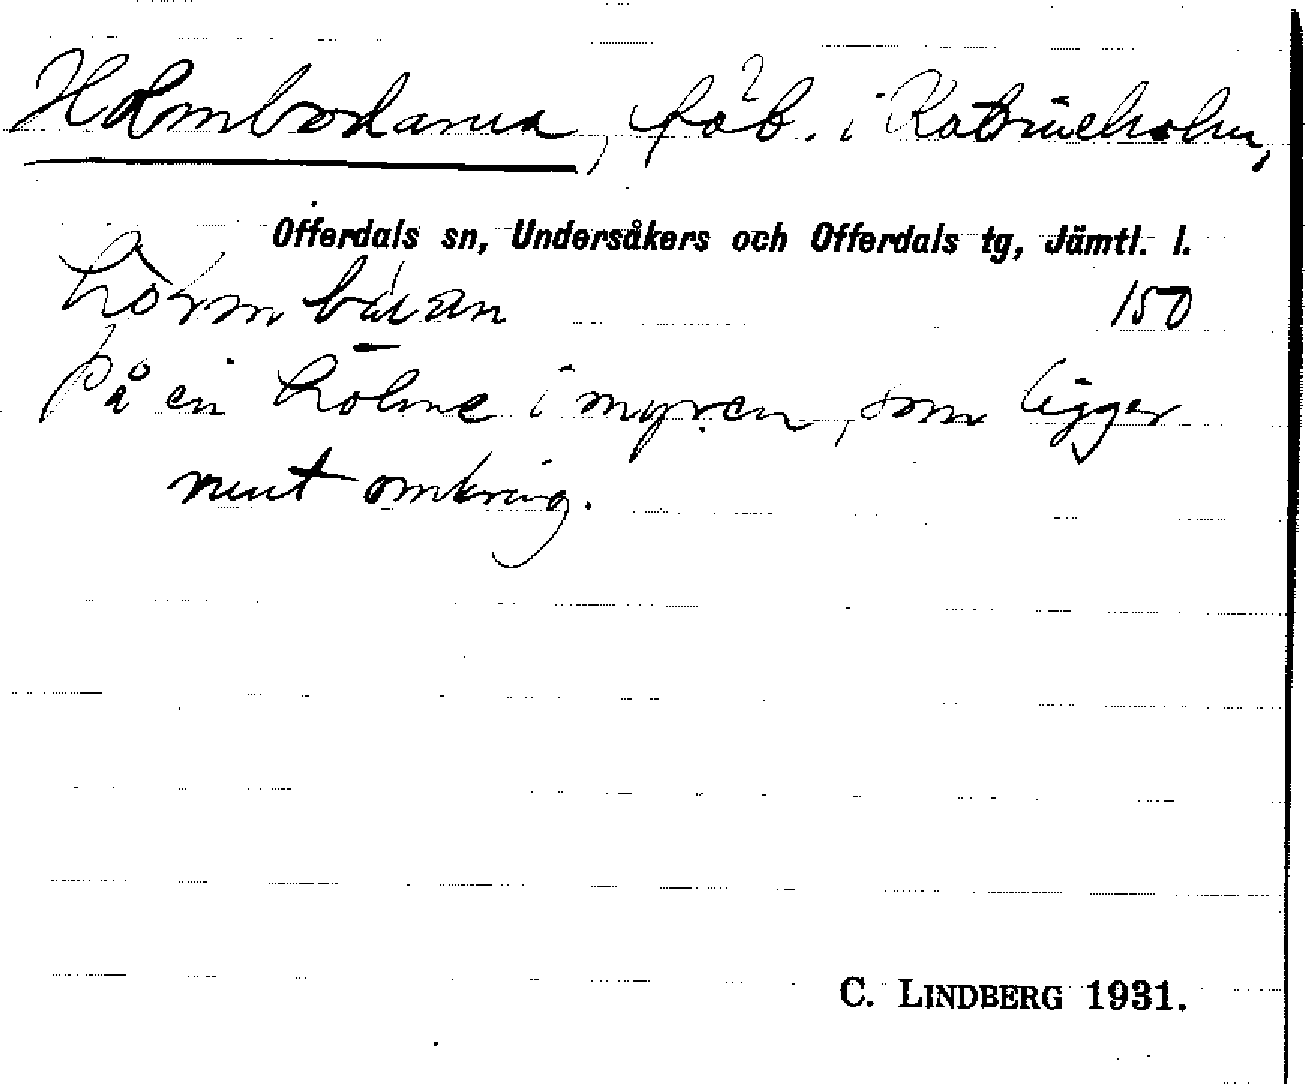 Holmbodarna, fäb. i Katrineholm,
Offerdals sn, Undersåkers och Offerdals tg, Jämtl. l.
150
På en holme i myren, som ligger
runt omkring.
C. LINDBERG 1931.